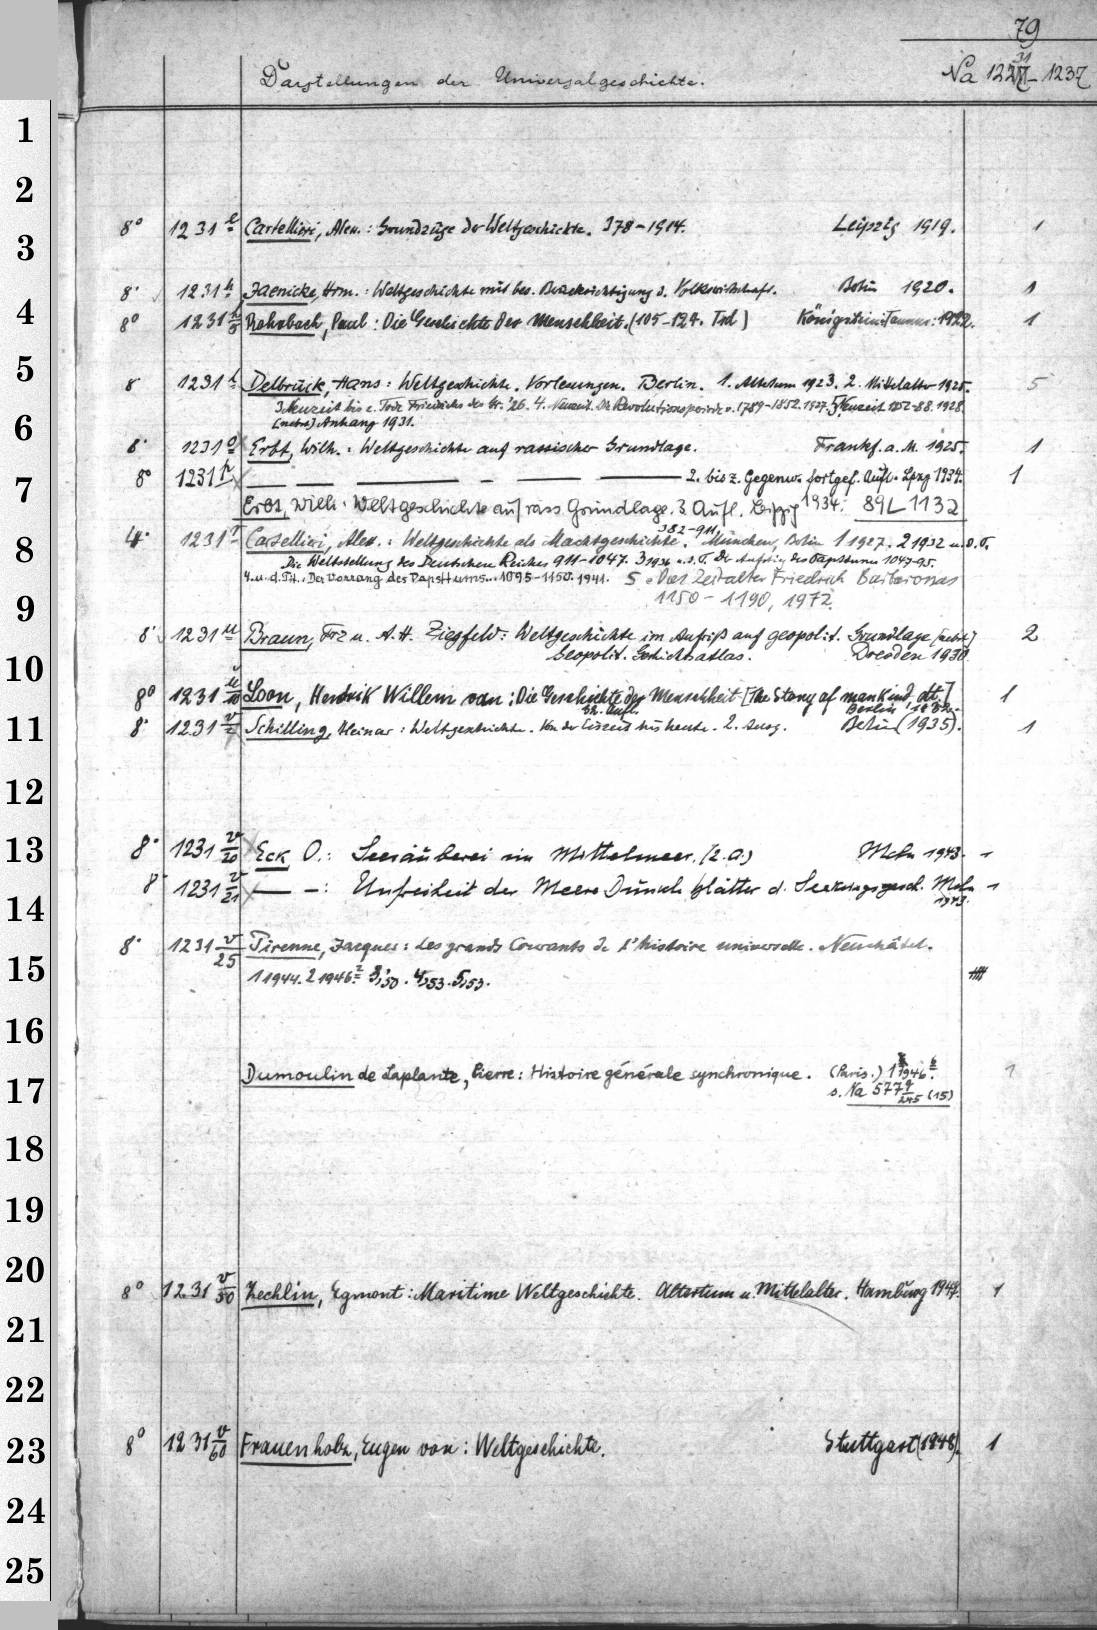 79
Darstellungen der Universalgeschichte. Na 1231 - 1237
1
2
3
8° 1231 e Cartellieri, Alex.: Grundzüge der Weltgeschichte. 378-1914. Leipzig 1919. 1
4
8° 1231 h Jaenicke, Hrm.: Weltgeschichte mit bes. Berücksichtigung d. Volkswirtschaft. Berlin 1920. 1
8° 1231 h/5 Rohrbach, Paul: Die Geschichte der Menschheit. (105-124. Tsd) Königstein: Taunus: 1922. 1
5
8° 1231 l Delbrück, Hans: Weltgeschichte. Vorlesungen. Berlin. 1. Altertum 1923. 2. Mittelalter 1925. 5
3 Neuzeit bis z. Tode Friedrichs des Gr. '26. 4. Neuzeit. Die Revolutionsperiode v. 1789-1852. 1927. 5 Neuzeit 1852-88. 1928.
[nebst] Anhang 1931.
6
8° 1231 o Erbt, Wilh.: Weltgeschichte auf rassischer Grundlage. Frankf. a. M. 1925. 1
7
8° 1231 p — — — - — — 2. bis z. Gegenw. fortgef. Aufl. Lpzg 1934. 1
Erbt, Wilh.: Weltgeschichte auf rass. Grundlage. 2. Aufl. Leipzig 1934: 89 L 1132
8
4° 1231 r Cartellieri, Alex.: Weltgeschichte als Machtgeschichte. 382-911. München, Berlin 1 1927. 2 1932 u. d. T.
Die Weltstellung des Deutschen Reiches 911-1047. 3 1936 u. d. T. Der Aufstieg des Papsttums 1047-95.
4. u. d. Tit.: Der Vorrang des Papsttums... 1095-1150. 1941. 5. Das Zeitalter Friedrich Barbarossas
1150-1190, 1972.
9
8° 1231 u Braun, Frz u. A. H. Ziegfeld: Weltgeschichte im Aufriß auf geopolit. Grundlage [nebst] 2
Geopolit. Geschichtsatlas. Dresden 1930
10
8° 1231 u/10 Loon, Hendrik Willem van: Die Geschichte der Menschheit [The Story of mankind, dt.] 1
Berlin
11
8° 1231 v Schilling, Heinar: Weltgeschichte. Von der Eiszeit bis heute. 2. Ausg. Berlin (1935). 1
12
13
8° 1231 v/20 Eck, O.: Seeräuberei im Mittelmeer. (2. A.) Mchn 1943. -1
14
8° 1231 v/21 — -: Unfreiheit der Meere Dünne blätter d. Seekriegsgesch. Mchn 1943. -1
15
8° 1231 v/25 Pirenne, Jacques: Les grands Courants de l'histoire universelle. Neuchâtel.
1 1944. 2 1946 3,'50. 4,53. 5,53.
16
17
Dumoulin de Laplante, Pierre: Histoire générale synchronique. (Paris.) 1 1946. 1
s. Na 577 9/245 (15)
18
19
20
8° 1231 v/50 Zechlin, Egmont: Maritime Weltgeschichte. Altertum u. Mittelalter. Hamburg 1947. 1
21
22
23
8° 1231 v/60 Frauenholz, Eugen von: Weltgeschichte. Stuttgart (1948). 1
24
25